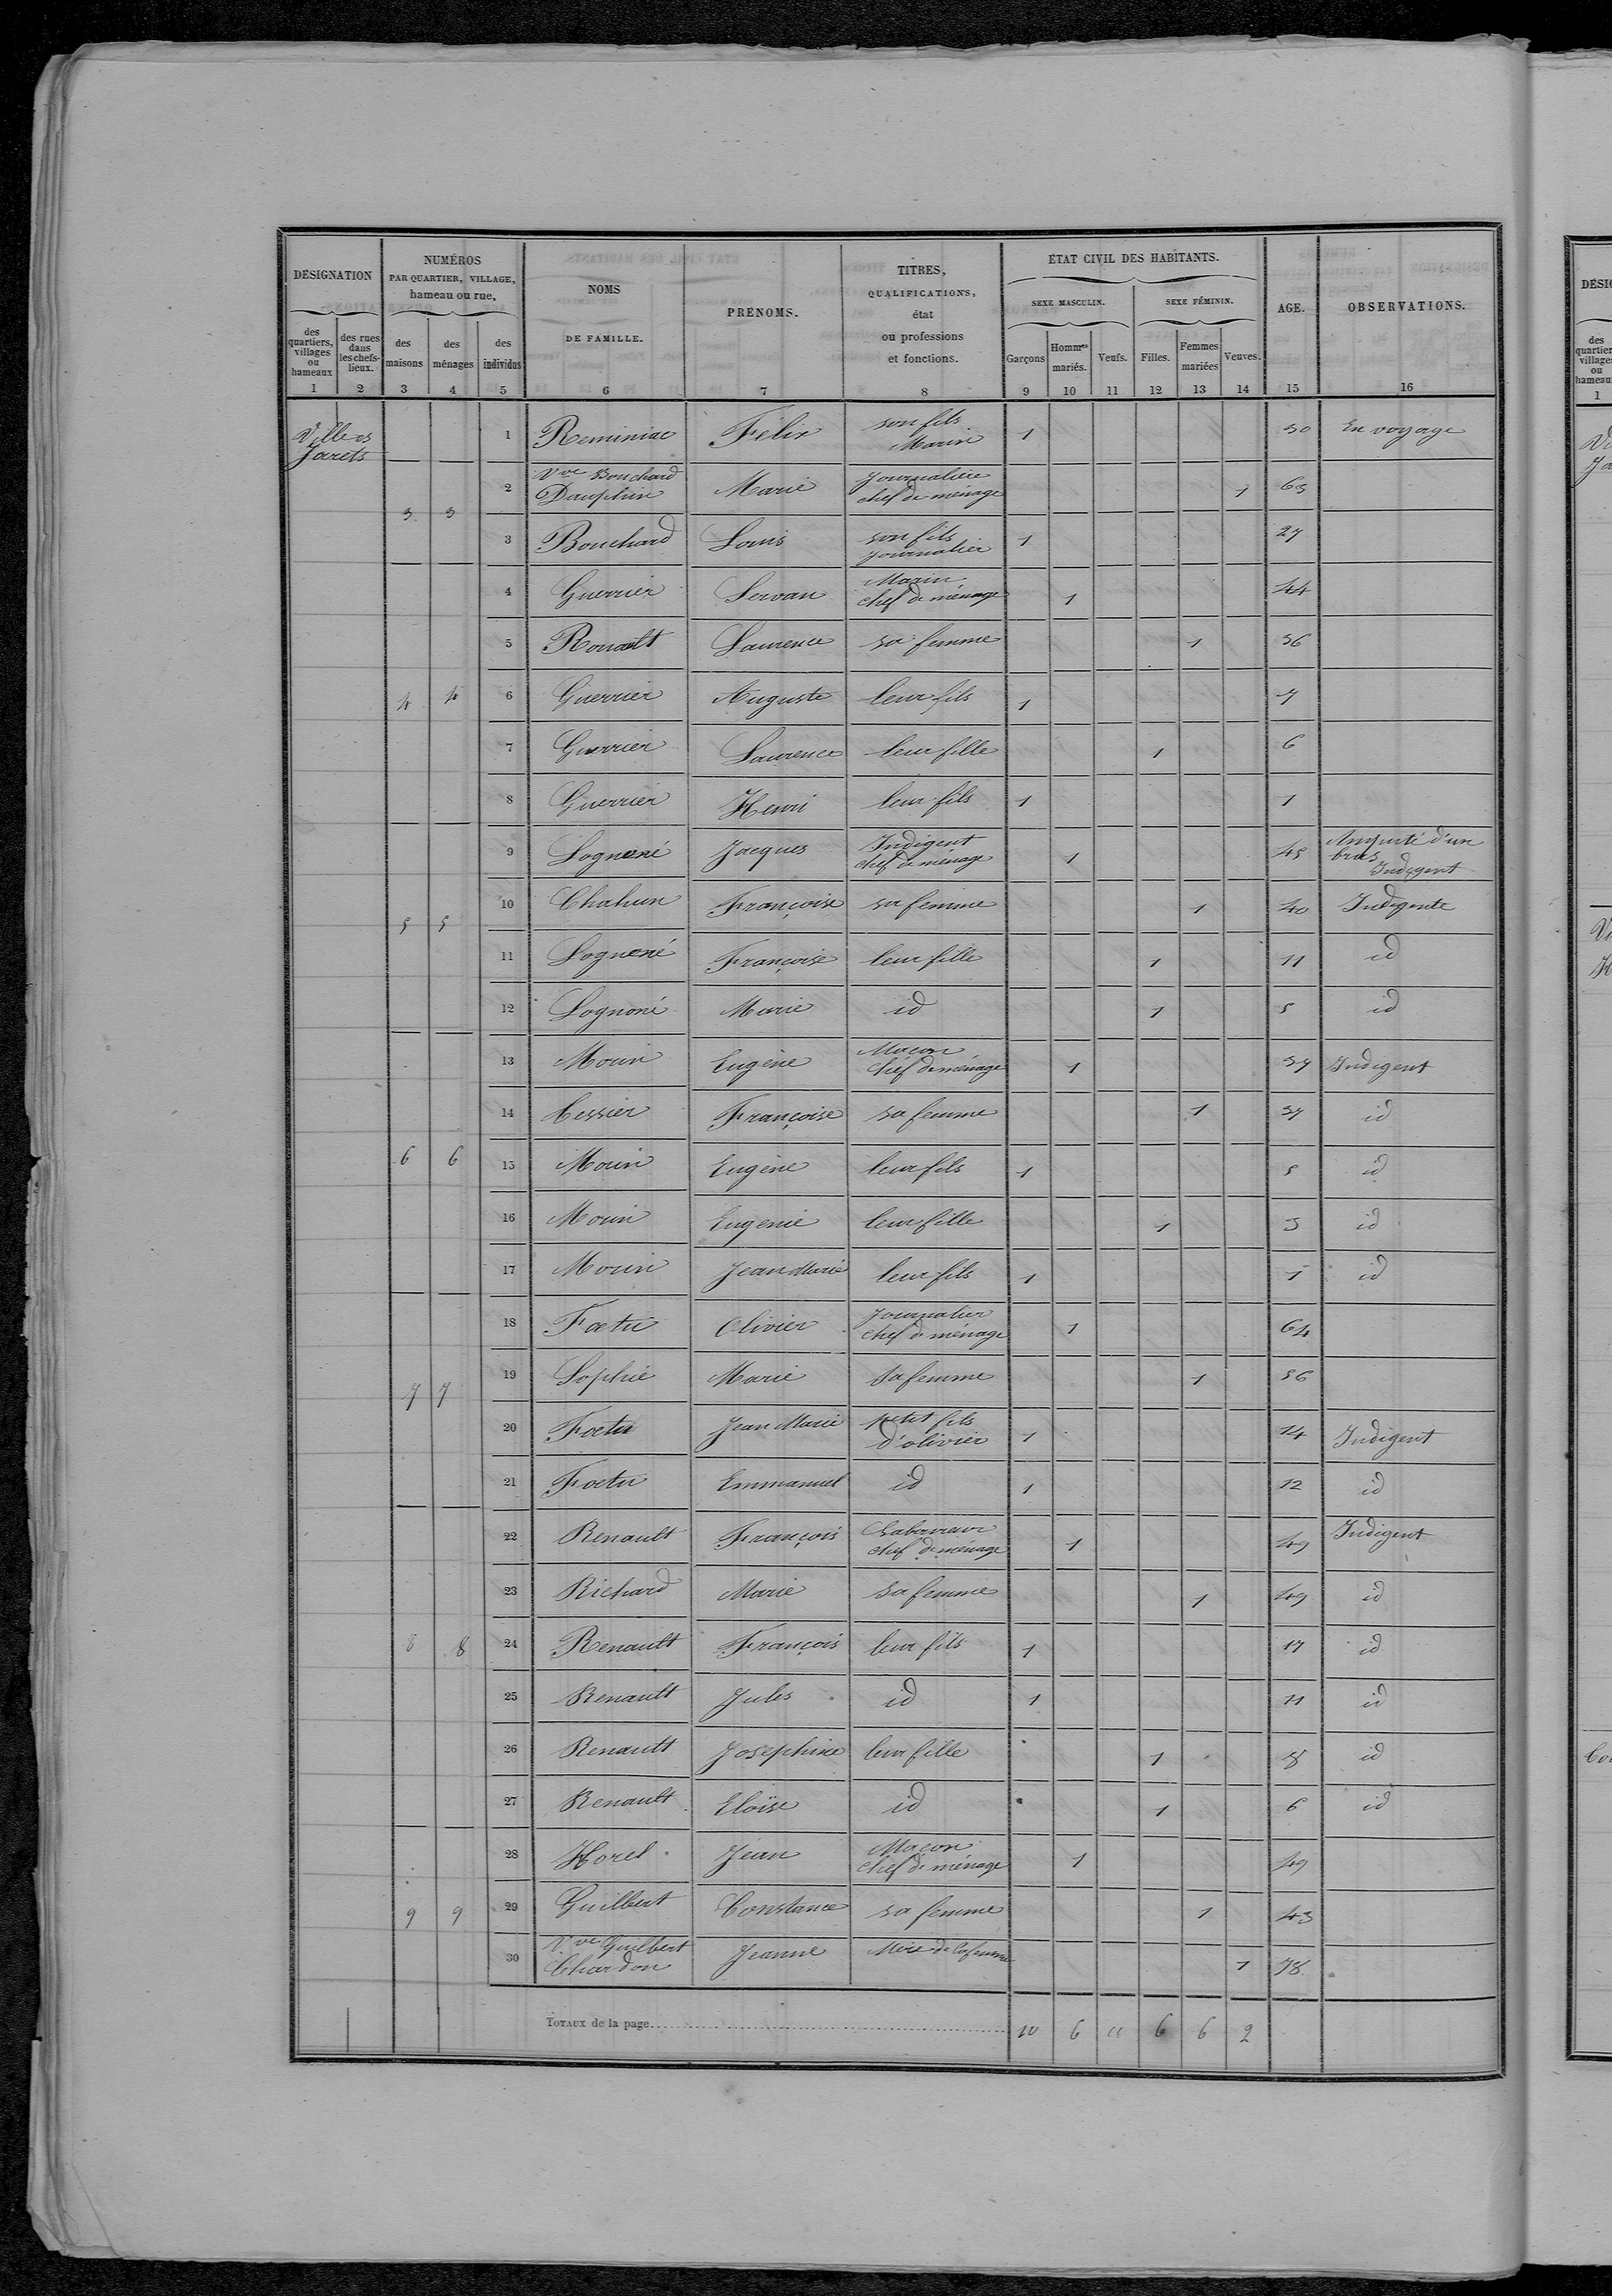 DÉSIGNATION
NUMÉROS
PAR QUARTIER, VILLAGE,
hameau ou rue,
NOMS
DE FAMILLE.
PRÉNOMS.
TITRES,
QUALIFICATIONS,
état
ou professions
et fonctions.
ÉTAT CIVIL DES HABITANTS.
SEXE MASCULIN.
SEXE FÉMININ.
AGE.
OBSERVATIONS.
des quartiers, villages ou hameaux
des rues dans les chefs-lieux.
des maisons
des ménages
des individus
Garçons
Hommes mariés.
Veufs.
Filles.
Femmes mariées
Veuves.
1 2 3 4 5 6 7 8 9 10 11 12 13 14 15 16
Villes Jarets
1 Reminiac Félix son fils Marin 1 30 En voyage
2 Vve Bouchard Dauphin Marie Journalière chef de ménage 1 63
3 3
3 Bouchard Louis son fils journalier 1 27
4 Guerrier Servan Marin chef de ménage 1 44
5 Rouault Laurence sa femme 1 36
4 4 6 Guerrier Auguste leur fils 1 7
7 Guerrier Laurence leur fille 1 6
8 Guerrier Henri leur fils 1 1
9 Lognoné Jacques Indigent chef de ménage 1 45 Amputé d'un bras Indigent
10 Chahun Françoise sa femme 1 40 Indigente
5 5
11 Lognoné Françoise leur fille 1 11 id
12 Lognoné Marie id 1 5 id
13 Morin Eugène Maçon chef de ménage 1 37 Indigent
14 Tessier Françoise sa femme 1 37 id
6 6 15 Morin Eugène leur fils 1 5 id
16 Morin Eugenie leur fille 1 3 id
17 Morin Jean Marie leur fils 1 1 id
18 Foetu Olivier Journalier chef de ménage 1 64
19 Sophie Marie Sa femme 1 56
7 7
20 Foetu Jean Marie petit fils d'olivier 1 14 Indigent
21 Foetu Emmanuel id 1 12 id
22 Renault François Laboureur chef de ménage 1 49 Indigent
23 Richard Marie sa femme 1 49 id
8 8 24 Renault François leur fils 1 17 id
25 Renault Jules id 1 11 id
26 Renault Josephine leur fille 1 8 id
27 Renault Eloïse id 1 6 id
28 Horel Jean Maçon chef de ménage 1 49
9 9 29 Guilbert Constance sa femme 1 43
30 Vve Guilbert Chardon Jeanne Mère de la femme 1 78
TOTAUX de la page 10 6 " 6 6 2
DÉSIG
des
quartier
village
ou
hameau
1